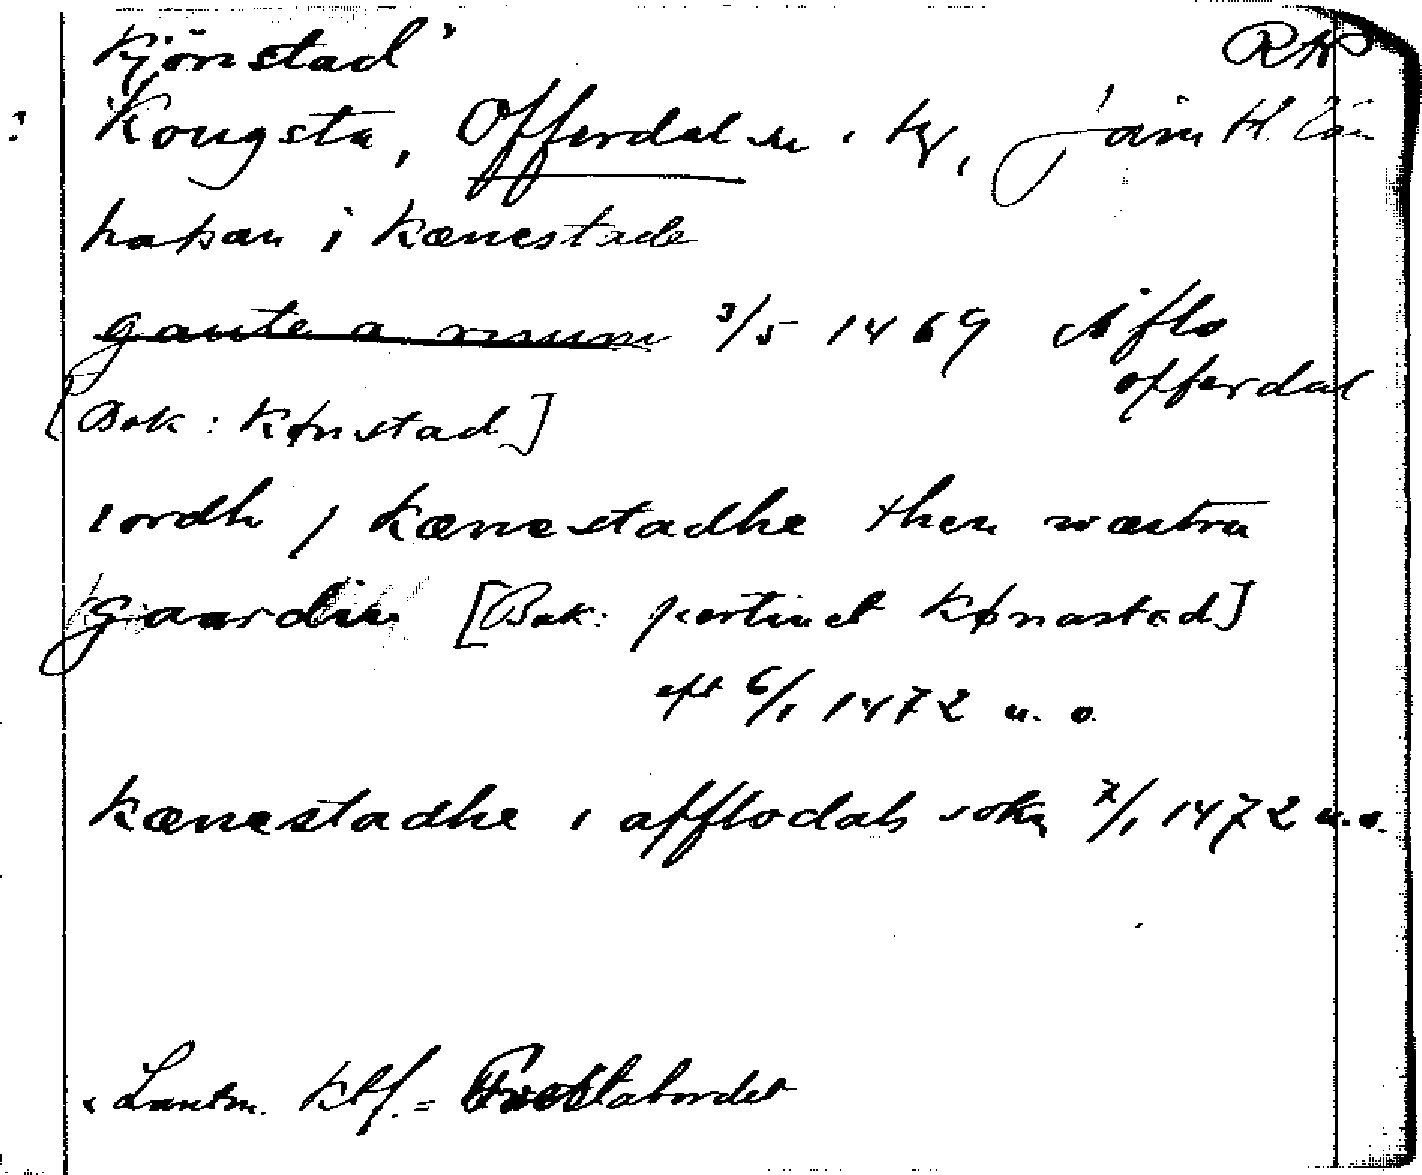 Kjönstad'
RAP
: Kougsta, Offerdal sn. Ky, Jämtl. län
hakan i kænestade
gaute a muum 3/5 1469 Aflo
offerdal
[Bak: kønstad]
iordh j kænestadhe then wæstra
gaardin [Bak: pertinet kønastad]
eft 6/1 1472 u. o.
kænestadhe i afflodals sokn 7/1 1472 u. o.
Lantm. Ktf. = Frostabordet